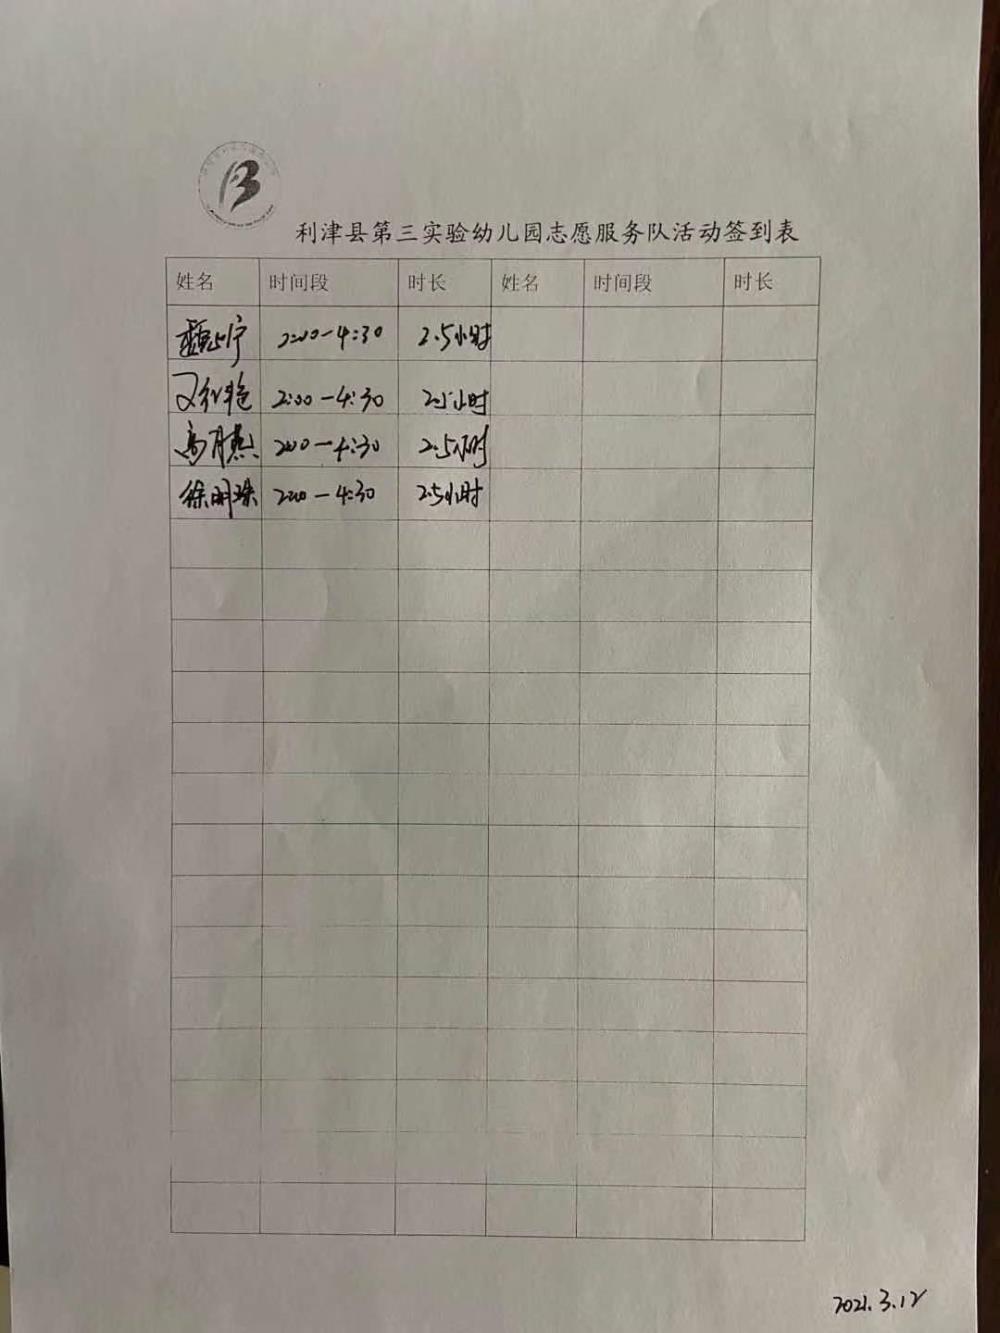 利津县第三实验幼儿园志愿服务队活动签到表
姓名 时间段 时长 姓名 时间段 时长
2:00-4:30 2.5小时
2:00-4:30 2.5小时
高月燕 2:00-4:30 2.5小时
徐明珠 2:00-4:30 2.5小时
2021.3.12